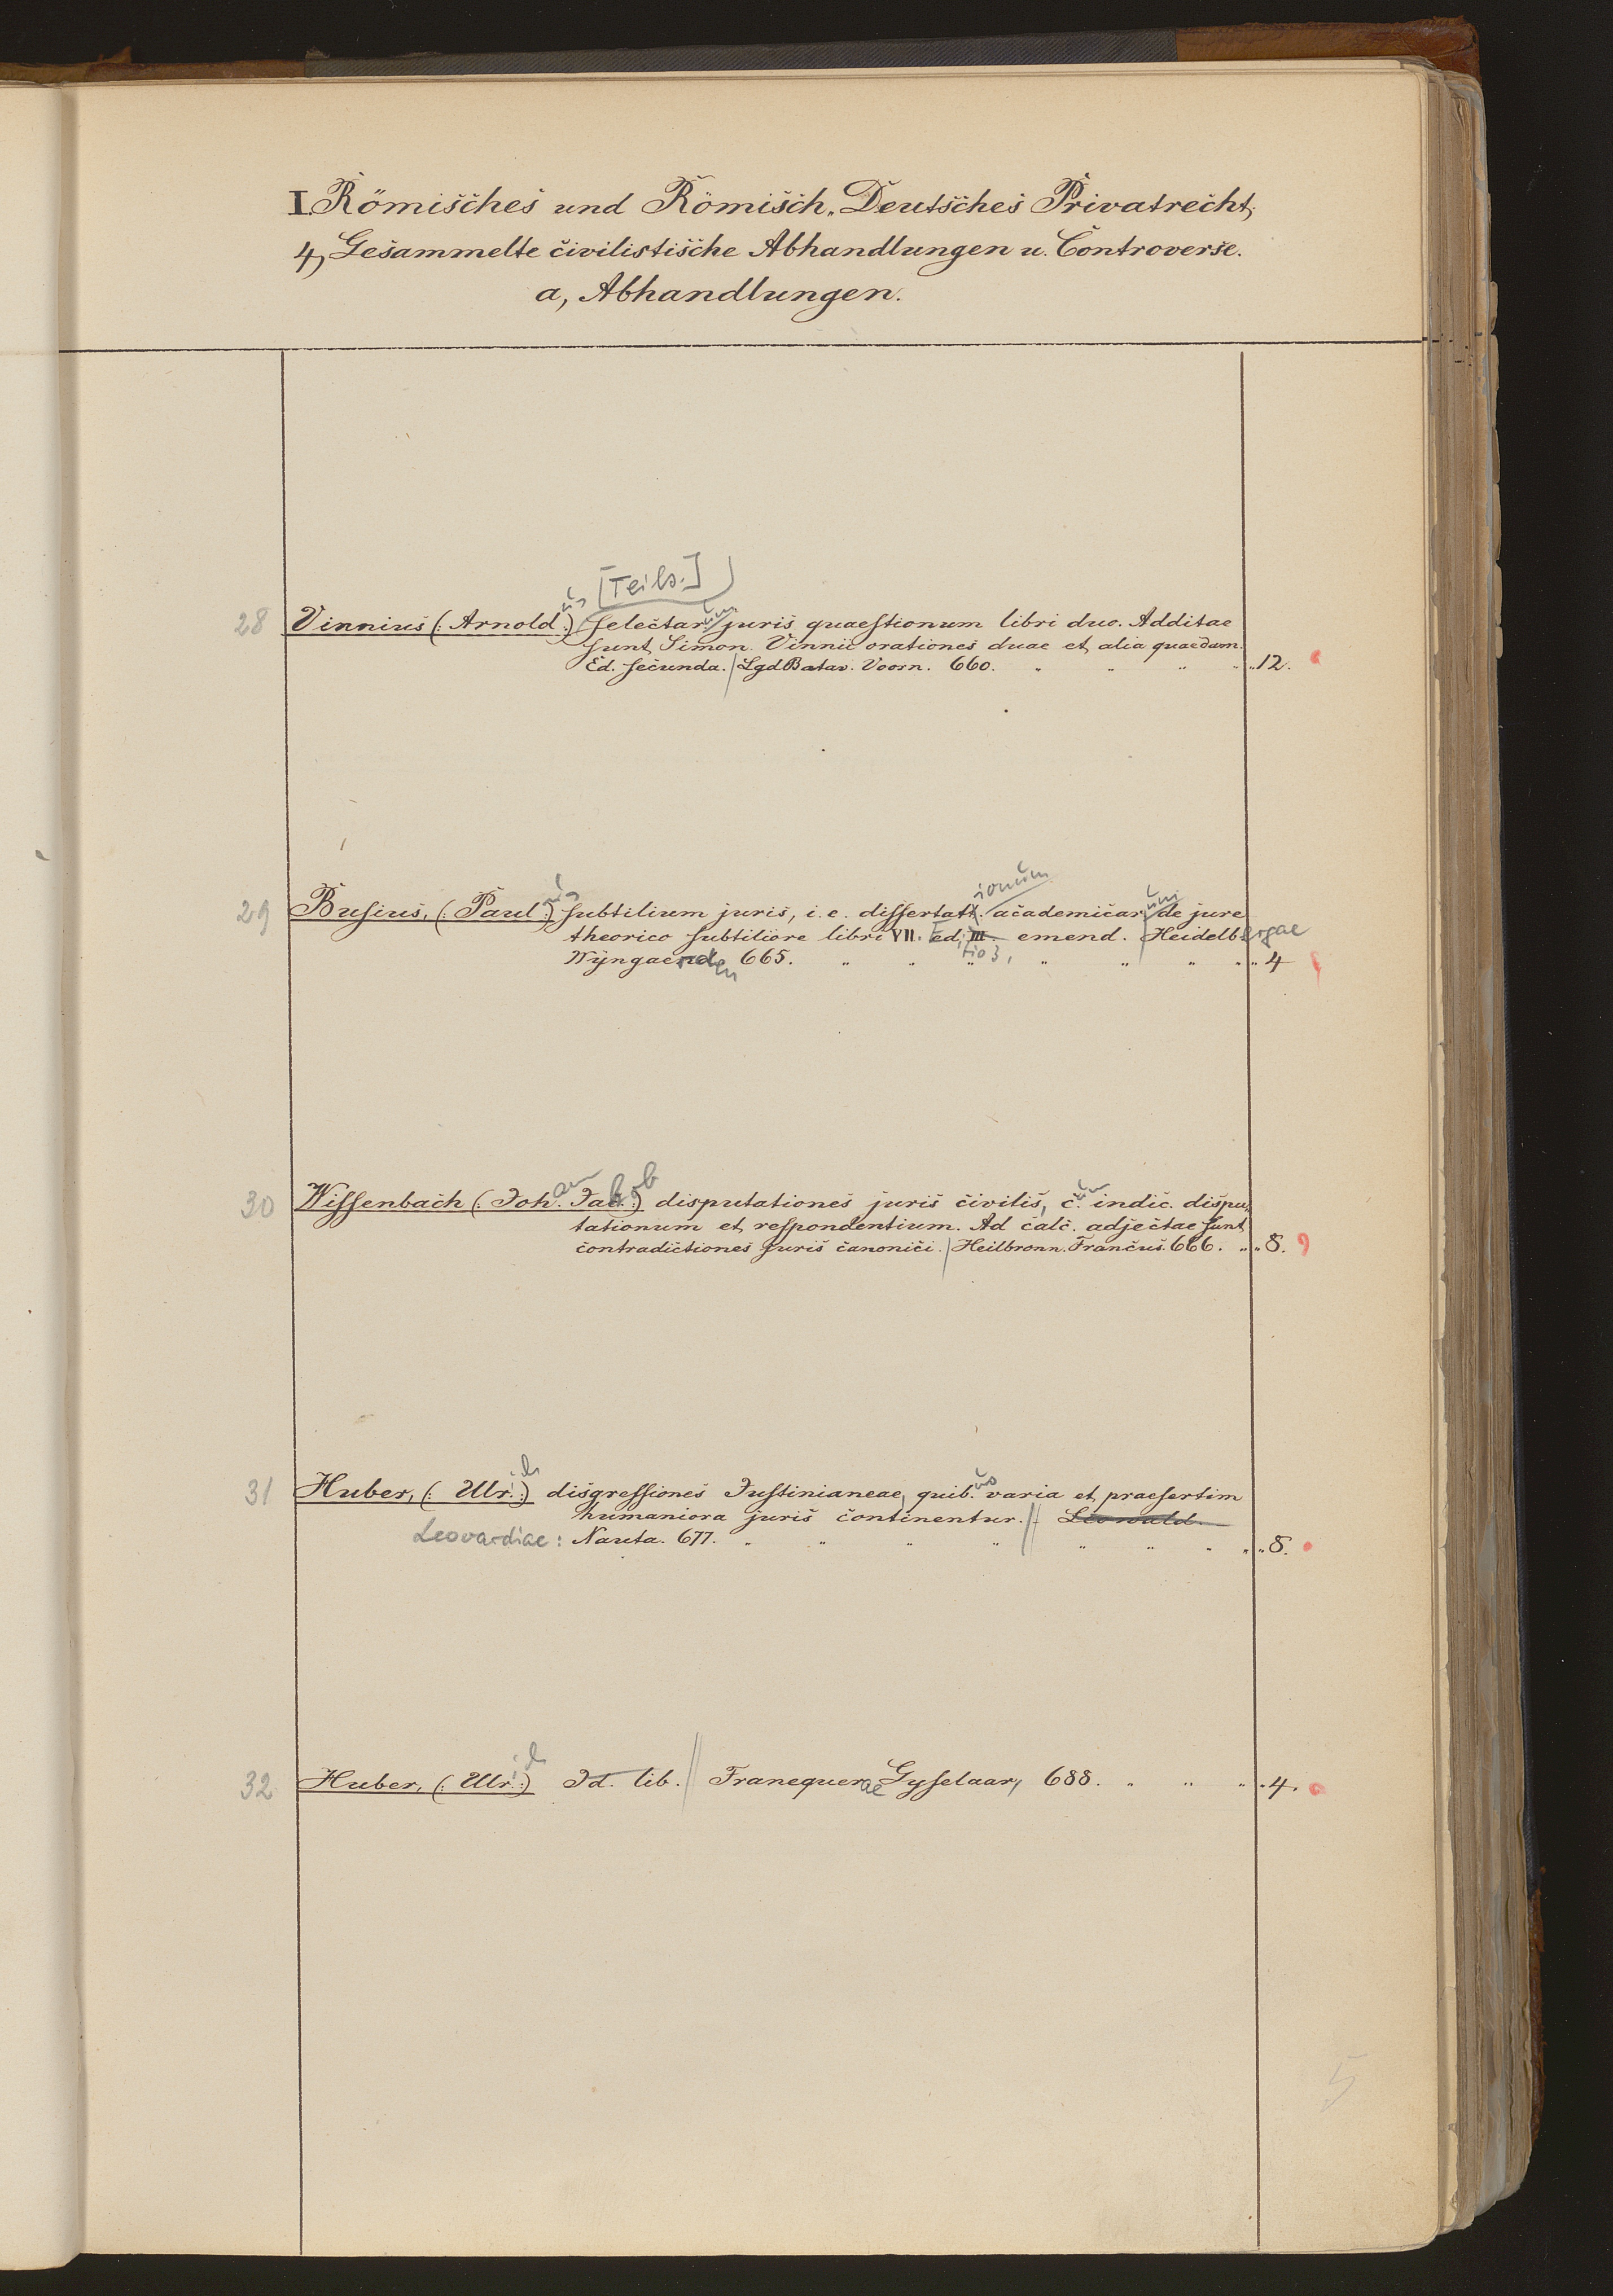 I. Römisches und Römisch-Deutsches Privatrecht.
4, Gesammelte civilistische Abhandlungen u. Controverse.
a, Abhandlungen.
[Teils.]
28 Vinnius (: Arnold :)us selectarum juris quaestionum libri duo. Additae
sunt Simon. Vinnii orationes duae et alia quaedam.
Ed. secunda. | Lgd Batav. Voorn. 660. " " " " " 12.
ionum
29 Busius, (: Paul :)us subtilium juris, i. e. dissertatt. academicarum de jure
theorico subtiliore libri VII. Ed. III. emend. | Heidelbergae
tio 3,
Wijngaerden 665. " " " " " " " " 4
30 Wissenbach (: Johann. Jakob :) disputationes juris civilis, c.um indic. dispu-
tationum et respondentium. Ad calc. adjectae sunt
contradictiones juris canonici. | Heilbronn. Francus. 666. " " 8.
31 Huber, (: Ulrich :) disgressiones Justinianeae, quibus varia et praesertim
humaniora juris continentur. || Leowald.
Leovardiae: Nauta. 677. " " " " " " " " " 8.
32 Huber, (: Ulrich :) Id. lib. || Franequerae Gysselaar, 688. " " " " 4.
5